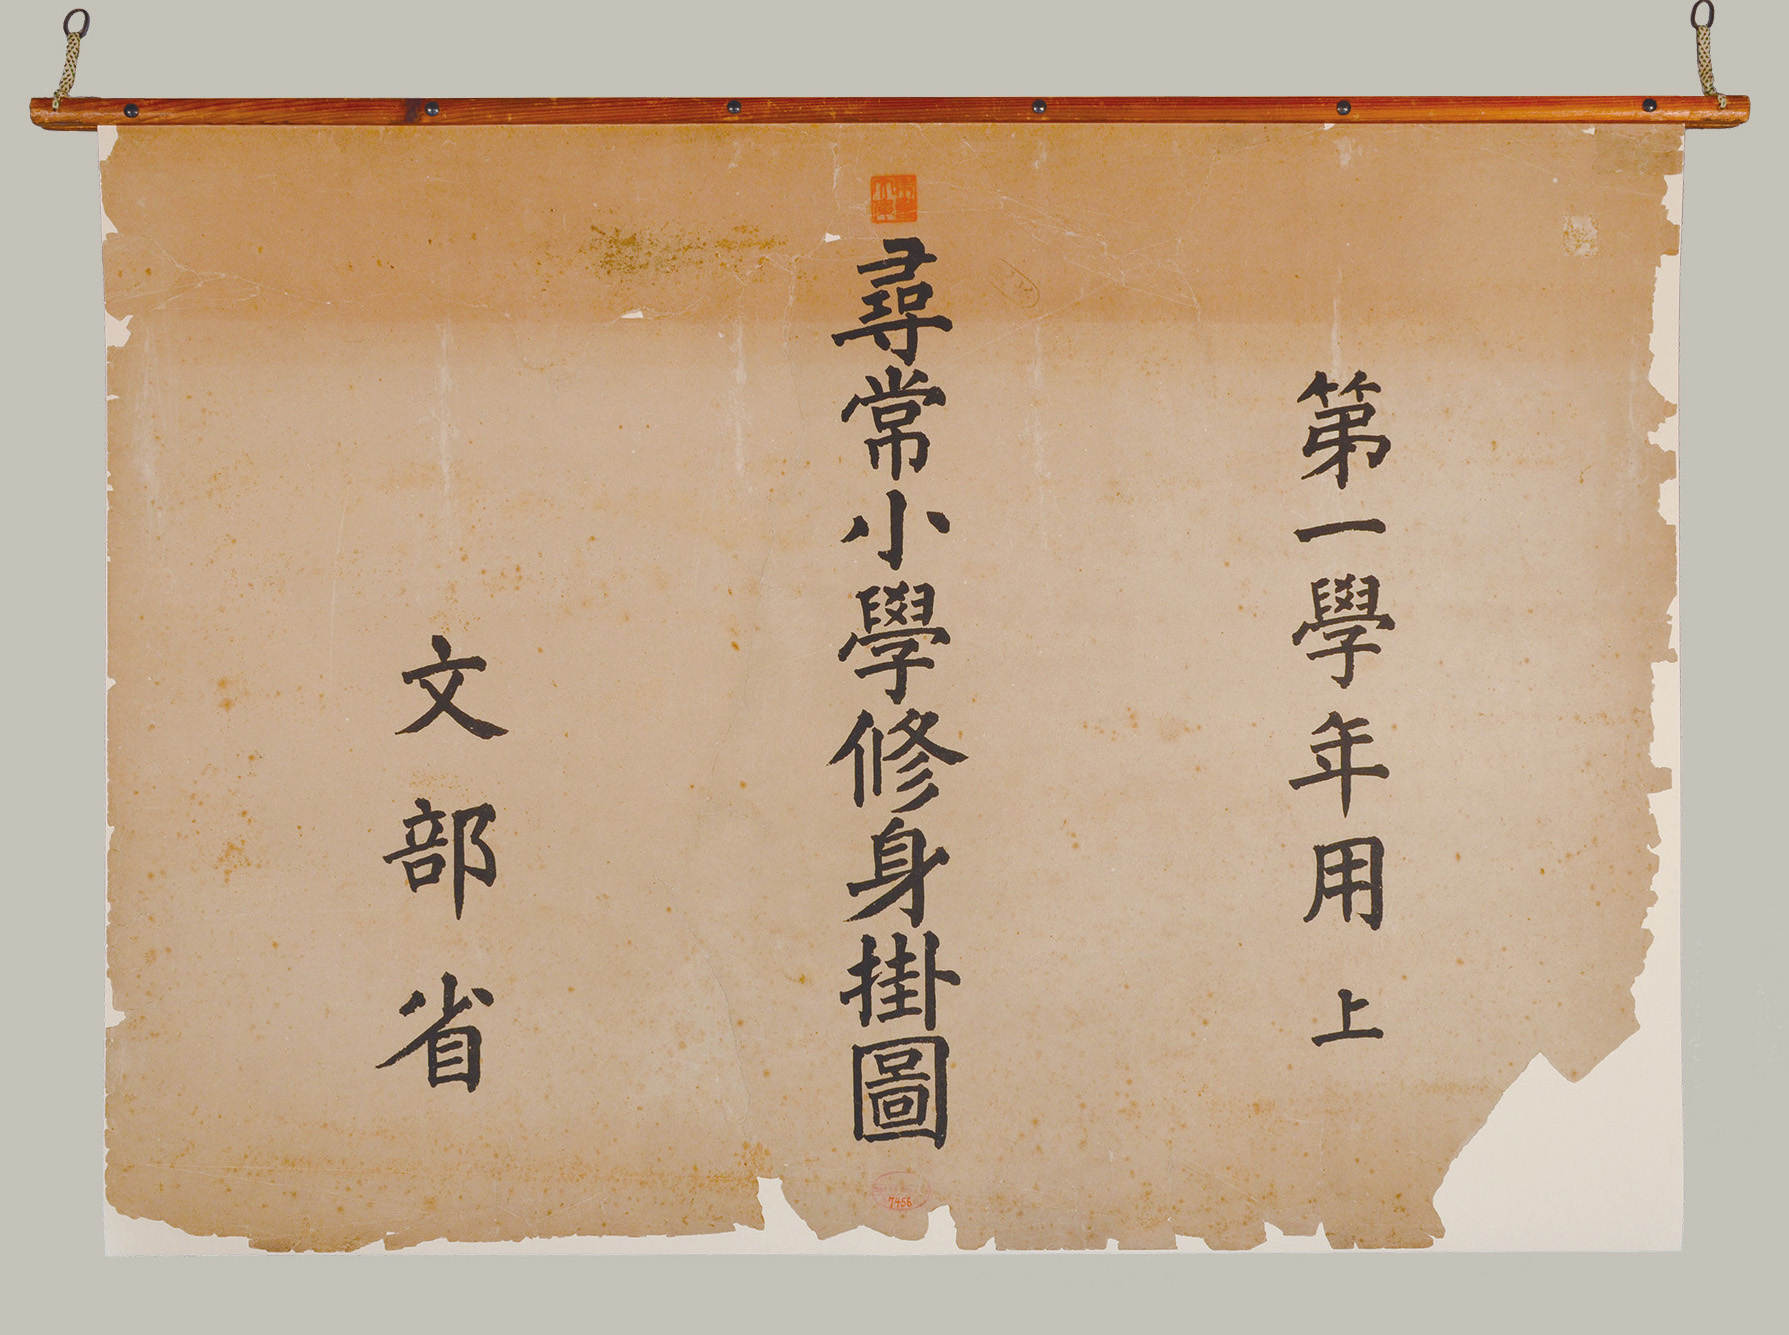 第一學年用 上
尋常小學修身掛圖
文部省
7456